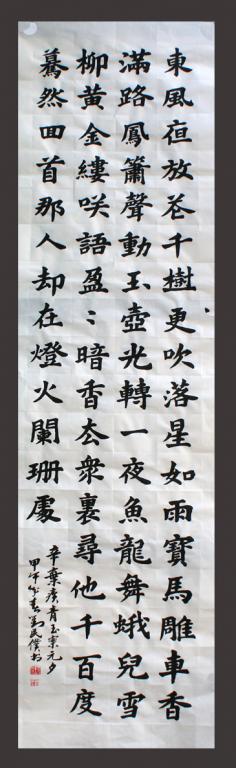 東風亱放花千樹更吹落星如雨寶馬雕車香
滿路鳳簫聲動玉壺光轉一夜魚龍舞蛾兒雪
柳黃金縷咲語盈〻暗香去衆裏尋他千百度
驀然回首那人却在燈火闌珊處
辛棄疾青玉案元夕
甲午